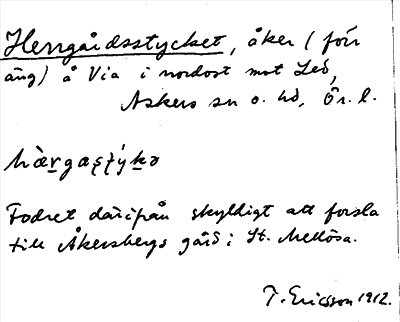 Herrgårdsstycket, åker (förr
äng) å Via i nordost mot Led,
Askers sn o. hd, Ör. l.
hàrgaʂt́ýkə
Fodret därifrån skyldigt att forsla
till Åkersbergs gård i St. Mellösa.
T. Ericsson 1912.